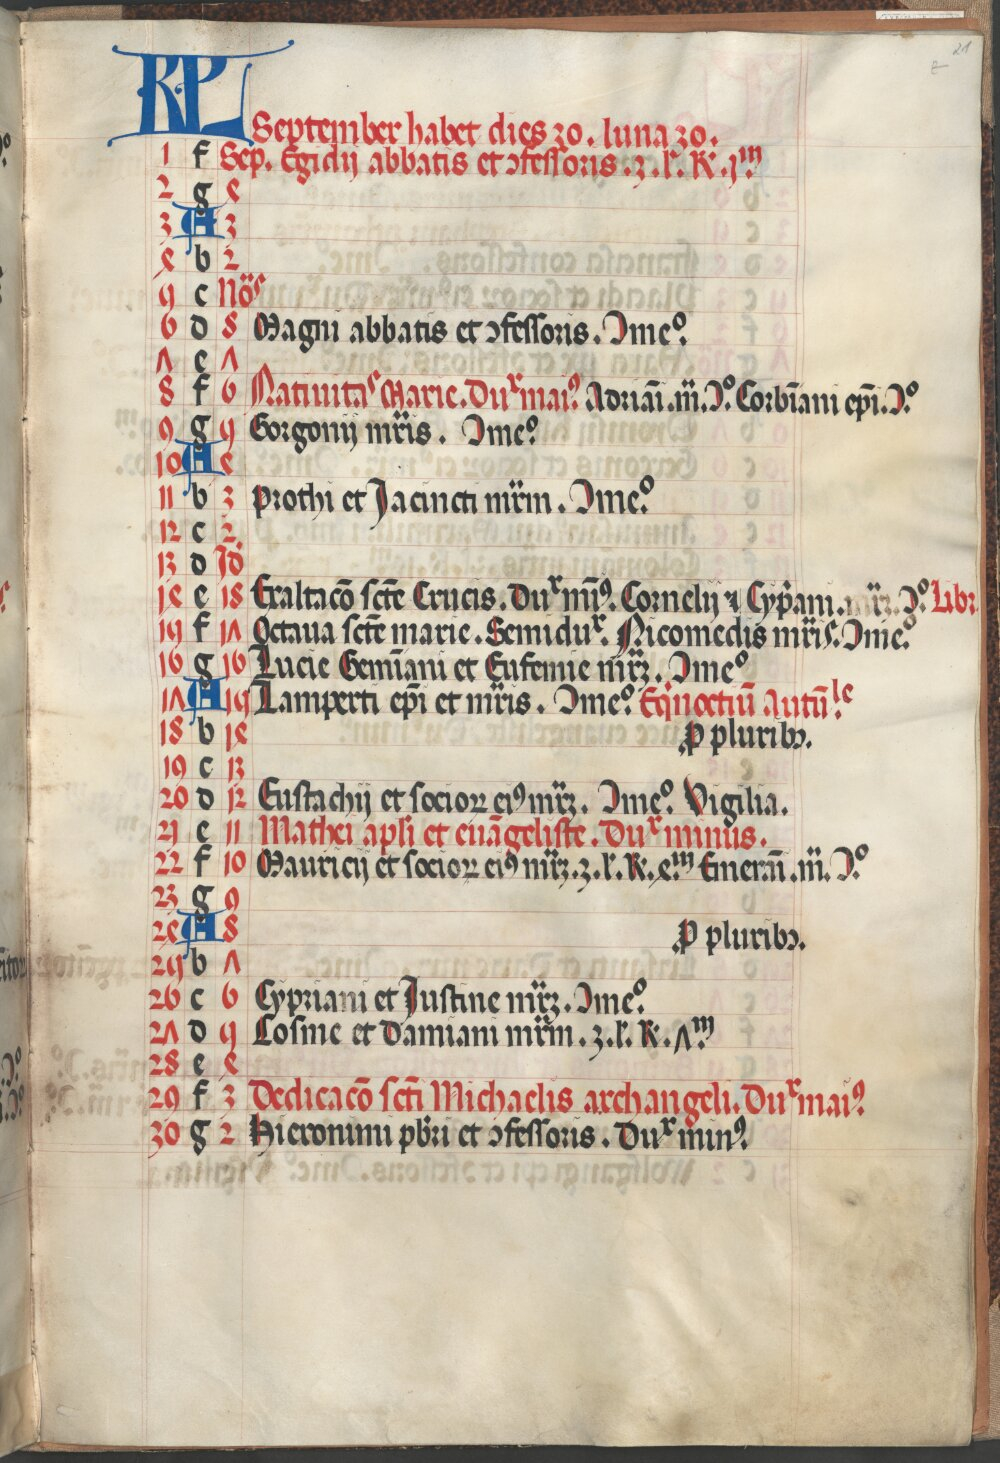 21
KL
September habet dies 30. luna 30.
1 f Sep. Egidij abbatis et ↄfessoris .3. l̄. R̄. jm
2 g 4
3 A 3
4 b 2
5 c Nōs
6 d 8 Magni abbatis et ↄfessoris. Ime⁹
7 e 7
8 f 6 Natiuitas Marie. Dux mai⁹ Adriāi .m̄. I⁹ Corbīani ep̄i. I⁹
9 g 5 Gorgonij mr̄is. Ime⁹
10 A 4
11 b 3 Prothi et Jacincti mr̄m. Ime⁹
12 c 2
13 d Id
14 e 18 Exaltacō scte Crucis. Dux mī⁹. Cornelij ⁊ Cyp̄ani. mr̄ꝝ. I⁹ Libr
15 f 17 Octaua scte marie. Semidux. Nicomedis mr̄is. Ime⁹
16 g 16 Lucie Gemīani et Eufemie mr̄ꝝ. Ime⁹
17 A 15 Lamperti ep̄i et mr̄is. Ime⁹ Eq̇noctiū Autūle
18 b 14 P̱ pluribꝫ.
19 c 13
20 d 12 Eustachij et socioꝝ ei⁹ mr̄ꝝ. Ime⁹ Vigilia.
21 e 11 Mathei apl̄i et euāgeliste. Dux minus.
22 f 10 Mauricij et socioꝝ ei⁹ mr̄ꝝ .3. l̄. R̄. 4m Emerā̄ .m̄. I⁹
23 g 9
24 A 8 P̱ pluribꝫ.
25 b 7
26 c 6 Cypriani et Justine mr̄ꝝ. Ime⁹
27 d 5 Cosme et Damiani mr̄m .3. l̄. R̄. 7m
28 e 4
29 f 3 Dedicacō scti Michaelis archangeli. Dux mai⁹
30 g 2 Hieronimi pb̄ri et ↄfessoris. Dux min⁹